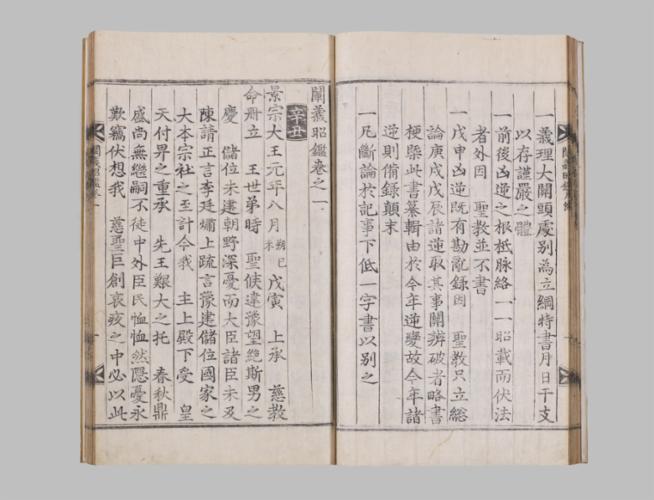 一義理大關頭處別為立綱特書月日干支
以存謹嚴之體
一前後凶逆之根柢脉絡一一昭載而伏法
者外因 聖教並不書
一戊申凶逆既有勘亂錄因 聖教只立綜
論庚戌戊辰諸逆取其事關辨破者略書
梗槩此書纂輯由於今年逆變故今年諸
逆則備錄顚末
一凡斷論於記事下低一字書以別之
闡義昭鑑卷之一
辛丑
景宗大王元年八月 朔己未 戊寅 上承 慈教
命冊立 王世弟時 聖候違豫望絶斯男之
慶 儲位未建朝野深憂而大臣諸臣未及
陳請正言李廷熽上疏言豫建儲位國家之
大本宗社之至計今我 主上殿下受 皇
天付畀之重承 先王艱大之托 春秋鼎
盛尚無繼嗣不徒中外臣民恤恤然隱憂永
歎竊伏想我 慈聖巨創哀疚之中必以此